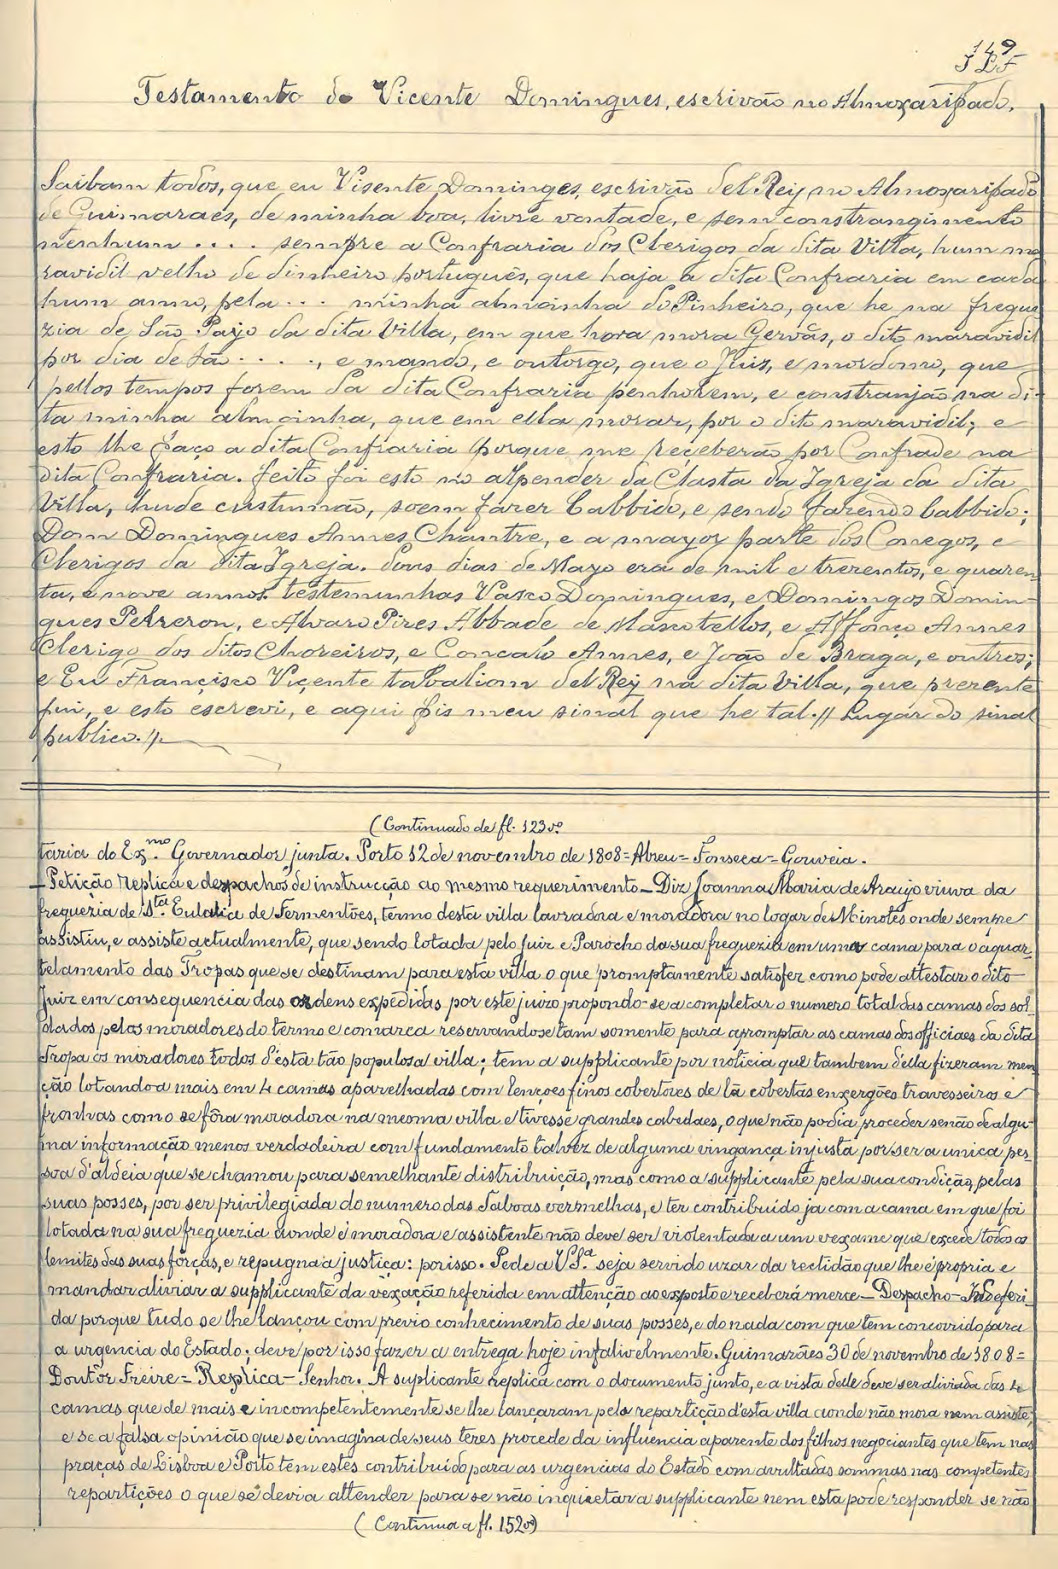 149
Testamento de Vicente Domingues, escrivão no Almoxarifado.
Saibam todos, que eu Visente Dominges, escrivão del Rey no Almoxarifado
de Guimaraes, de minha boa, livre vontade, e sem constrangimento
nenhum .... sempre a Confraria dos Clerigos da dita Villa, hum ma
ravidil velho de dinheiro portugues, que haja a dita Confraria em cada
hum anno, pela ... minha almoinha do Pinheiro, que he na fregue
zia de São Payo da dita Villa, em que hora mora Gervás, o dito maravidil
por dia de São ...., e mando, e outorgo, que o Juis, e mordomo, que
pellos tempos forem da dita Confraria penhorem, e constranjão na di-
ta minha almoinha, que em ella morar, por o dito maravidil; e
esto lhe faço a dita Confraria porque me receberão por Confrade na
dita Confraria. feito foi esto no alpender da Clasta da Igreja da dita
Villa, hude custumão, soem fazer Cabbido, e sendo fazendo Cabbido;
Dom Domingues Annes Chantre, e a mayor parte dos Conegos, e
Clerigos da dita Igreja. dous dias de Mayo era de mil e trezentos, e quaren
ta, e nove annos. testemunhas Vasco Domingues, e Domingos Domin-
gues Pelreron, e Alvaro Pires Abbade de Mascotellos, e Affonço Annes
Clerigo dos ditos Choreiros, e Concalo Annes, e João de Braga, e outros;
e Eu Françisco Viçente tabaliom del Rey na dita Villa, que prezente
fui, e esto escrevi, e aqui fis meu sinal que he tal. // Lugar do sinal
publico. //
(Continuado de fl. 123vº
taria do Exmo. Governador junta. Porto 12 de novembro de 1808 = Abreu = Fonseca = Gouveia.
— Petição replica e despachos de instrucção ao mesmo requerimento — Diz Joanna Maria de Araujo viuva da
freguezia de Sta. Eulalia de Fermentões, termo desta villa lavradora e moradora no logar de Minotes onde sempre
assistiu, e assiste actualmente, que sendo lotada pelo Juiz e Parocho da sua freguezia em uma cama para o aquar-
telamento das Tropas que se destinam para esta villa o que promptamente satisfez como pode attestar o dito
Juiz em consequencia das ordens expedidas por este juizo propondo-se a completar o numero total das camas dos sol-
dados pelos moradores do termo e comarca reservandose tam somente para apromptar as camas dos officiaes da dita
Tropa os moradores todos d'esta tão populosa villa; tem a supplicante por noticia que tambem d'ella fizeram men
ção lotando-a mais em 4 camas aparelhadas com lençoes finos cobertores de lã cobertas enxergões travesseiros e
fronhas como se fôra moradora na mesma villa e tivesse grandes cabedaes, o que não podia proceder senão de algu-
ma informação menos verdadeira com fundamento talvez de alguma vingança injusta por ser a unica pes-
soa d'aldeia que se chamou para semelhante distribuição, mas como a supplicante pela sua condição, pelas
suas posses, por ser privilegiada do numero das Taboas vermelhas, e ter contribuido ja com a cama em que foi
lotada na sua freguezia aonde é moradora e assistente não deve ser violentada a um vexame que excede todos os
lemites das suas forças, e repugna a justiça: por isso. Pede a V.Sª. seja servido uzar da rectidão que lhe é propria e
mandar aliviar a supplicante da vexação referida em attenção ao exposto e receberá merce — Despacho — Indeferi-
da porque tudo se lhe lançou com previo conhecimento de suas posses, e do nada com que tem concorrido para
a urgencia do Estado; deve por isso fazer a entrega hoje infalivelmente. Guimarães 30 de novembro de 1808 =
Doutor Freire = Replica — Senhor. A suplicante replica com o documento junto, e a vista delle deve ser aliviada das 4
camas que de mais e incompetentemente se lhe lançaram pela repartição d'esta villa aonde não mora nem assiste
e se a falsa opinião que se imagina de seus teres procede da influencia aparente dos filhos negociantes que tem nas
praças de Lisboa e Porto tem estes contribuido para as urgencias do Estado com avultadas sommas nas competentes
repartições o que se devia attender para se não inquietar a supplicante nem esta pode responder se não
(Continua a fl. 152vº)